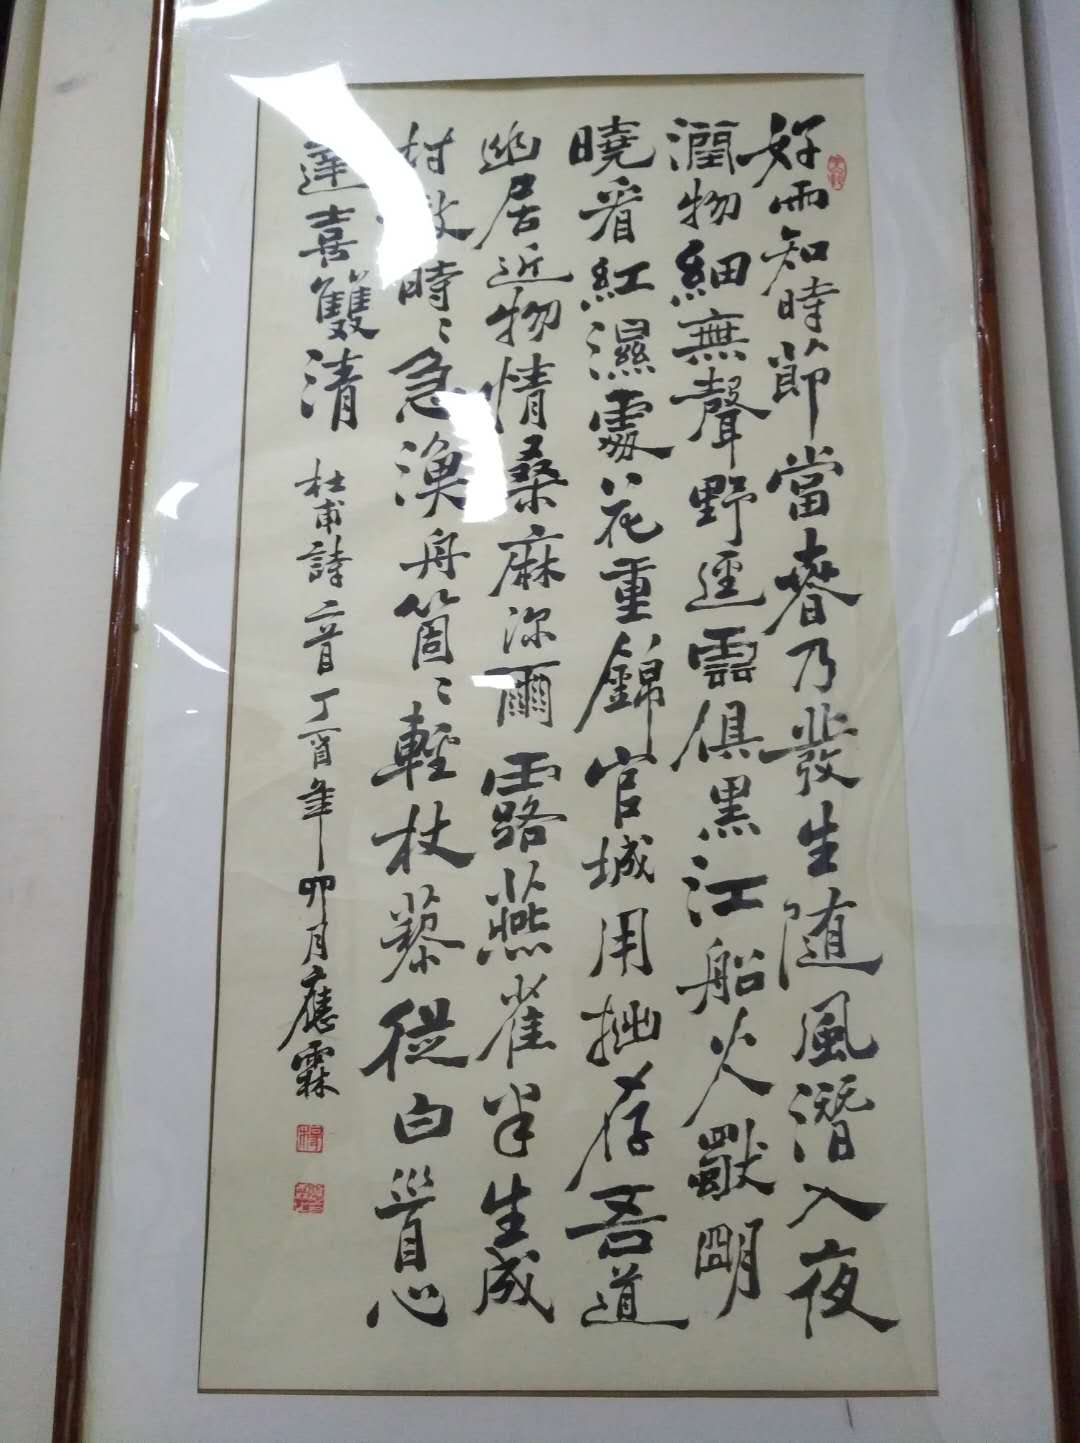 好雨知時節當春乃發生随風潛入夜
潤物細無聲野逕雲俱黑江船火獨明
曉看紅濕處花重錦官城用拙存吾道
幽居近物情桑麻深爾露燕雀半生成
村鼓時〻急漁舟箇〻輕杖藜從白首心
達喜雙清 杜甫詩二首丁亥年卯月應霖